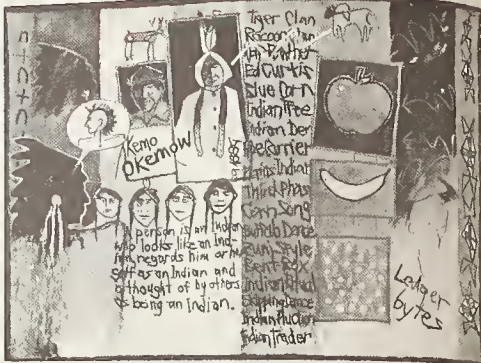 Kemo
Okemow
A person is an Indian
who looks like an Ind-
ian, regards him or her
self as an Indian and
is thought of by others
as being an Indian.
Tiger Clan
Raccoon Clan
Ed Curtis
Blue Corn
Indian Tree
Plains Indian
Third Phase
Corn Song
Buffalo Dance
Zuni Style
Bent Box
Indian Ritual
Indian Auction
Indian Trader
Ledger
bytes